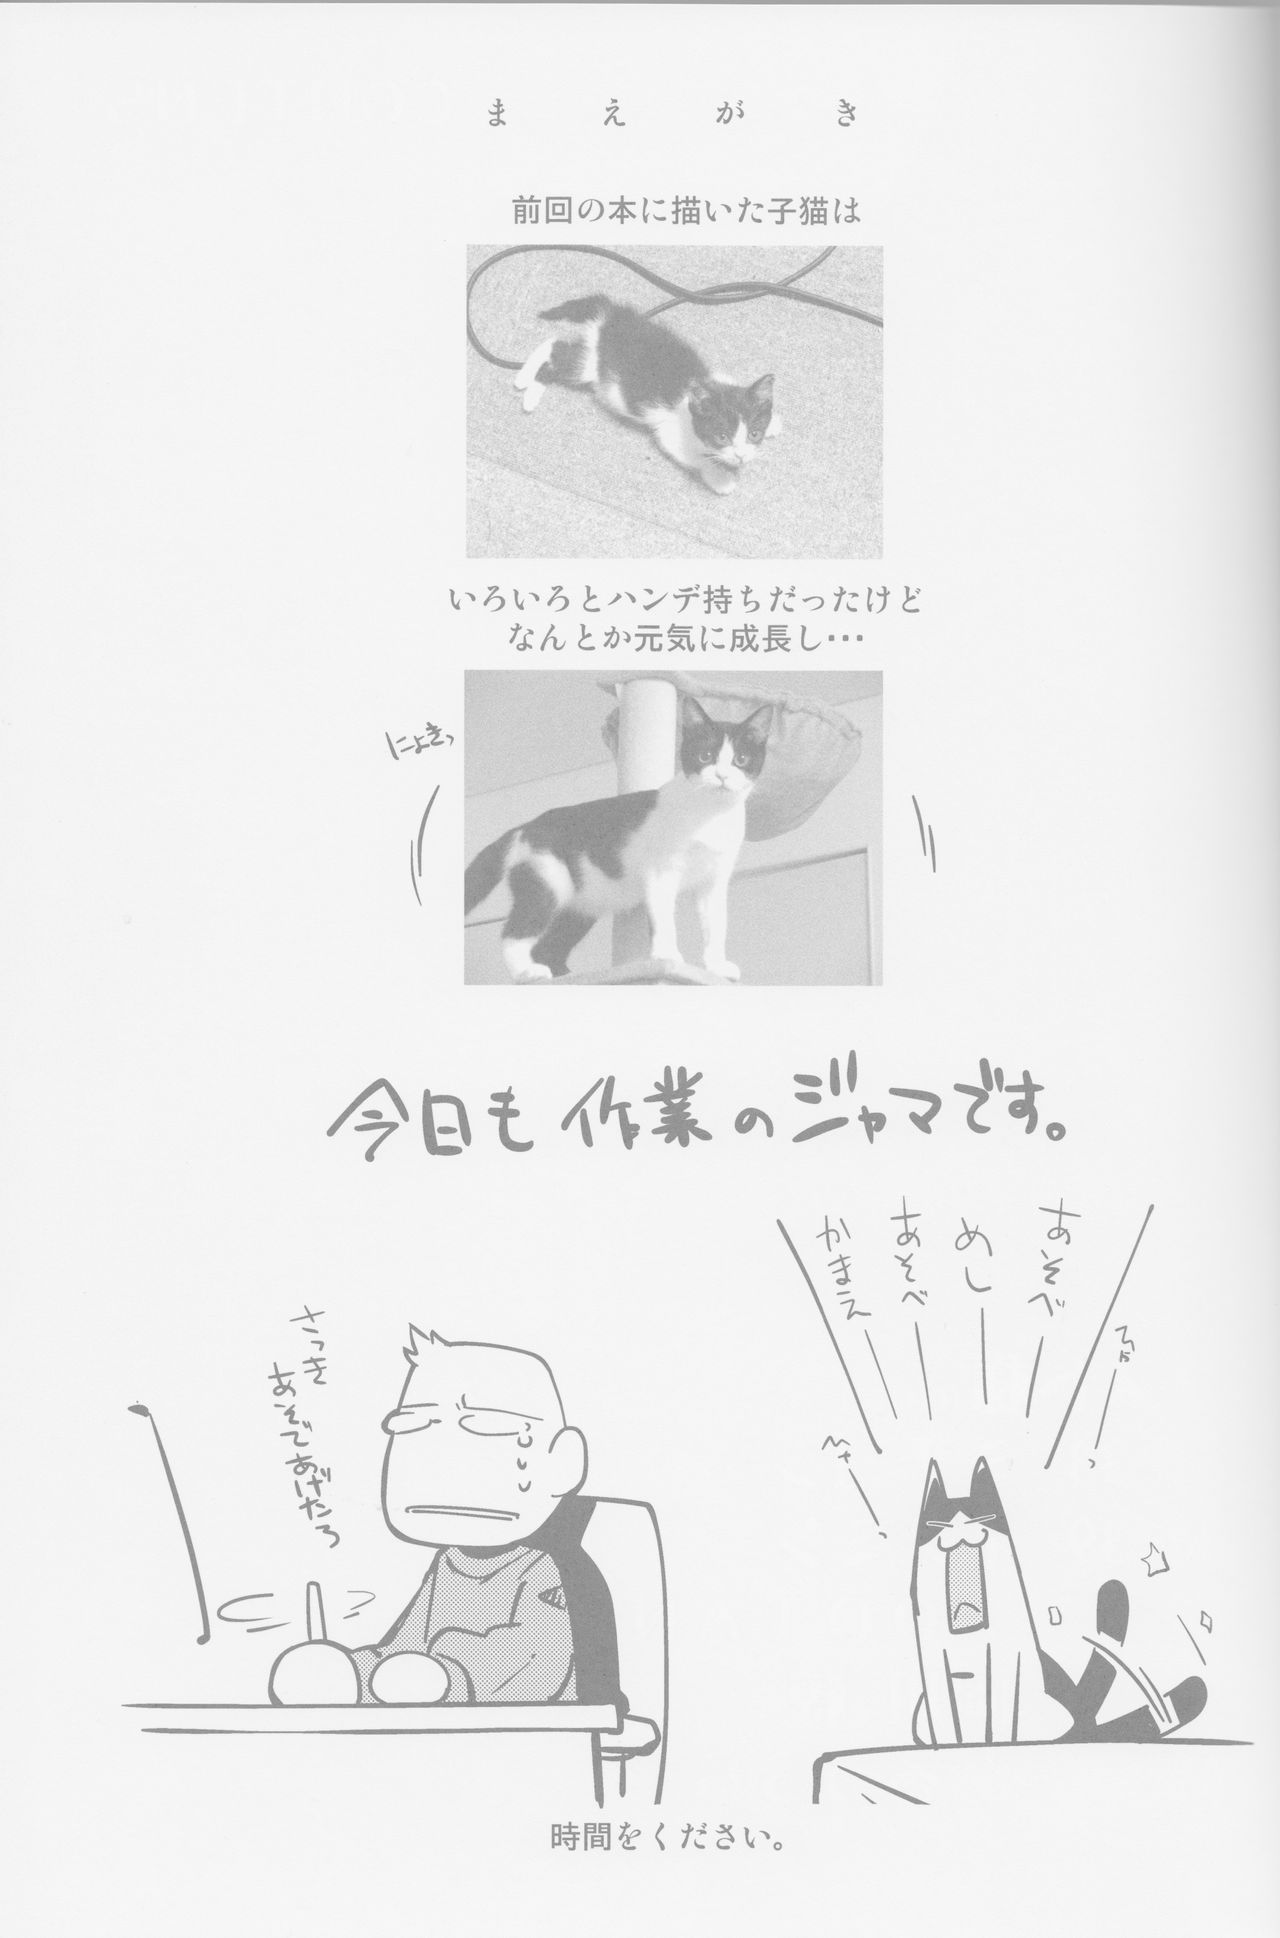 まえがき
前回の本に描いた子猫は
いろいろとハンデ持ちだったけど
なんとか元気に成長し・・・
にょきっ
今日も作業のジャマです。
あそべ
めし
あそべ
かまえ
さっき
あそんであげたろ
時間をください。